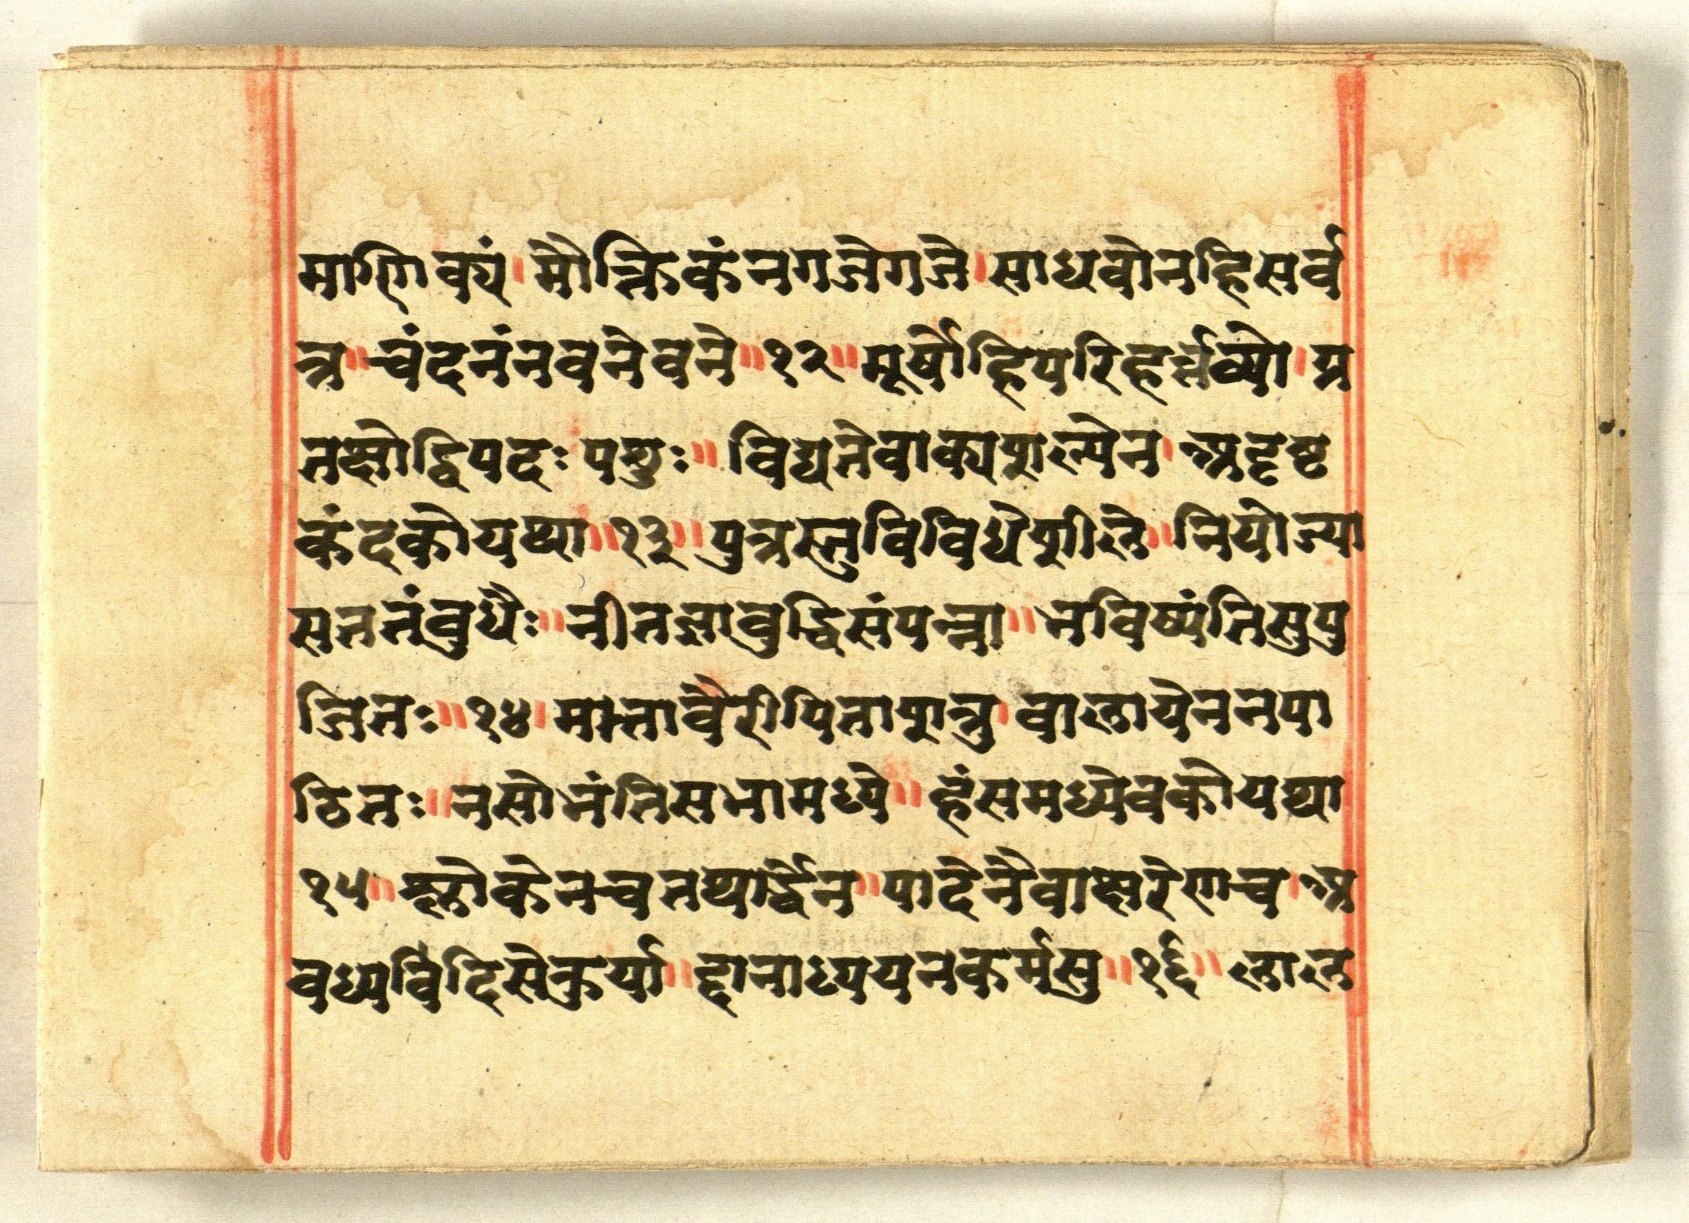 माणिक्यं।मौक्तिकंनगजेगजे।साधवोनहिसर्व
त्र॥चंदनंनवनेवने॥१२॥मूर्षोहिपरिहर्त्तव्यो।प्र
तक्षोद्विपदःपशुः॥विद्यतेवाक्यशल्येन।अदृष्ट
कंटकोयथा॥१३॥पुत्रस्तुविविधेशीले॥नियोज्या
सततंबुधैः॥नीतज्ञाबुद्धिसंपन्ना॥भविष्यंतिसुपु
जितः॥१४।मातावैरीपिताशत्रु।बालायेननपा
ठितः॥नसोभंतिसभामध्ये॥हंसमध्येबकोयथा
१५॥श्लोकेनचतथार्द्धेन॥पादेनैवाक्षरेणच।अ
वध्यर्विदिसेकुर्या॥द्दानाध्ययनकर्मसु॥१६॥लाल